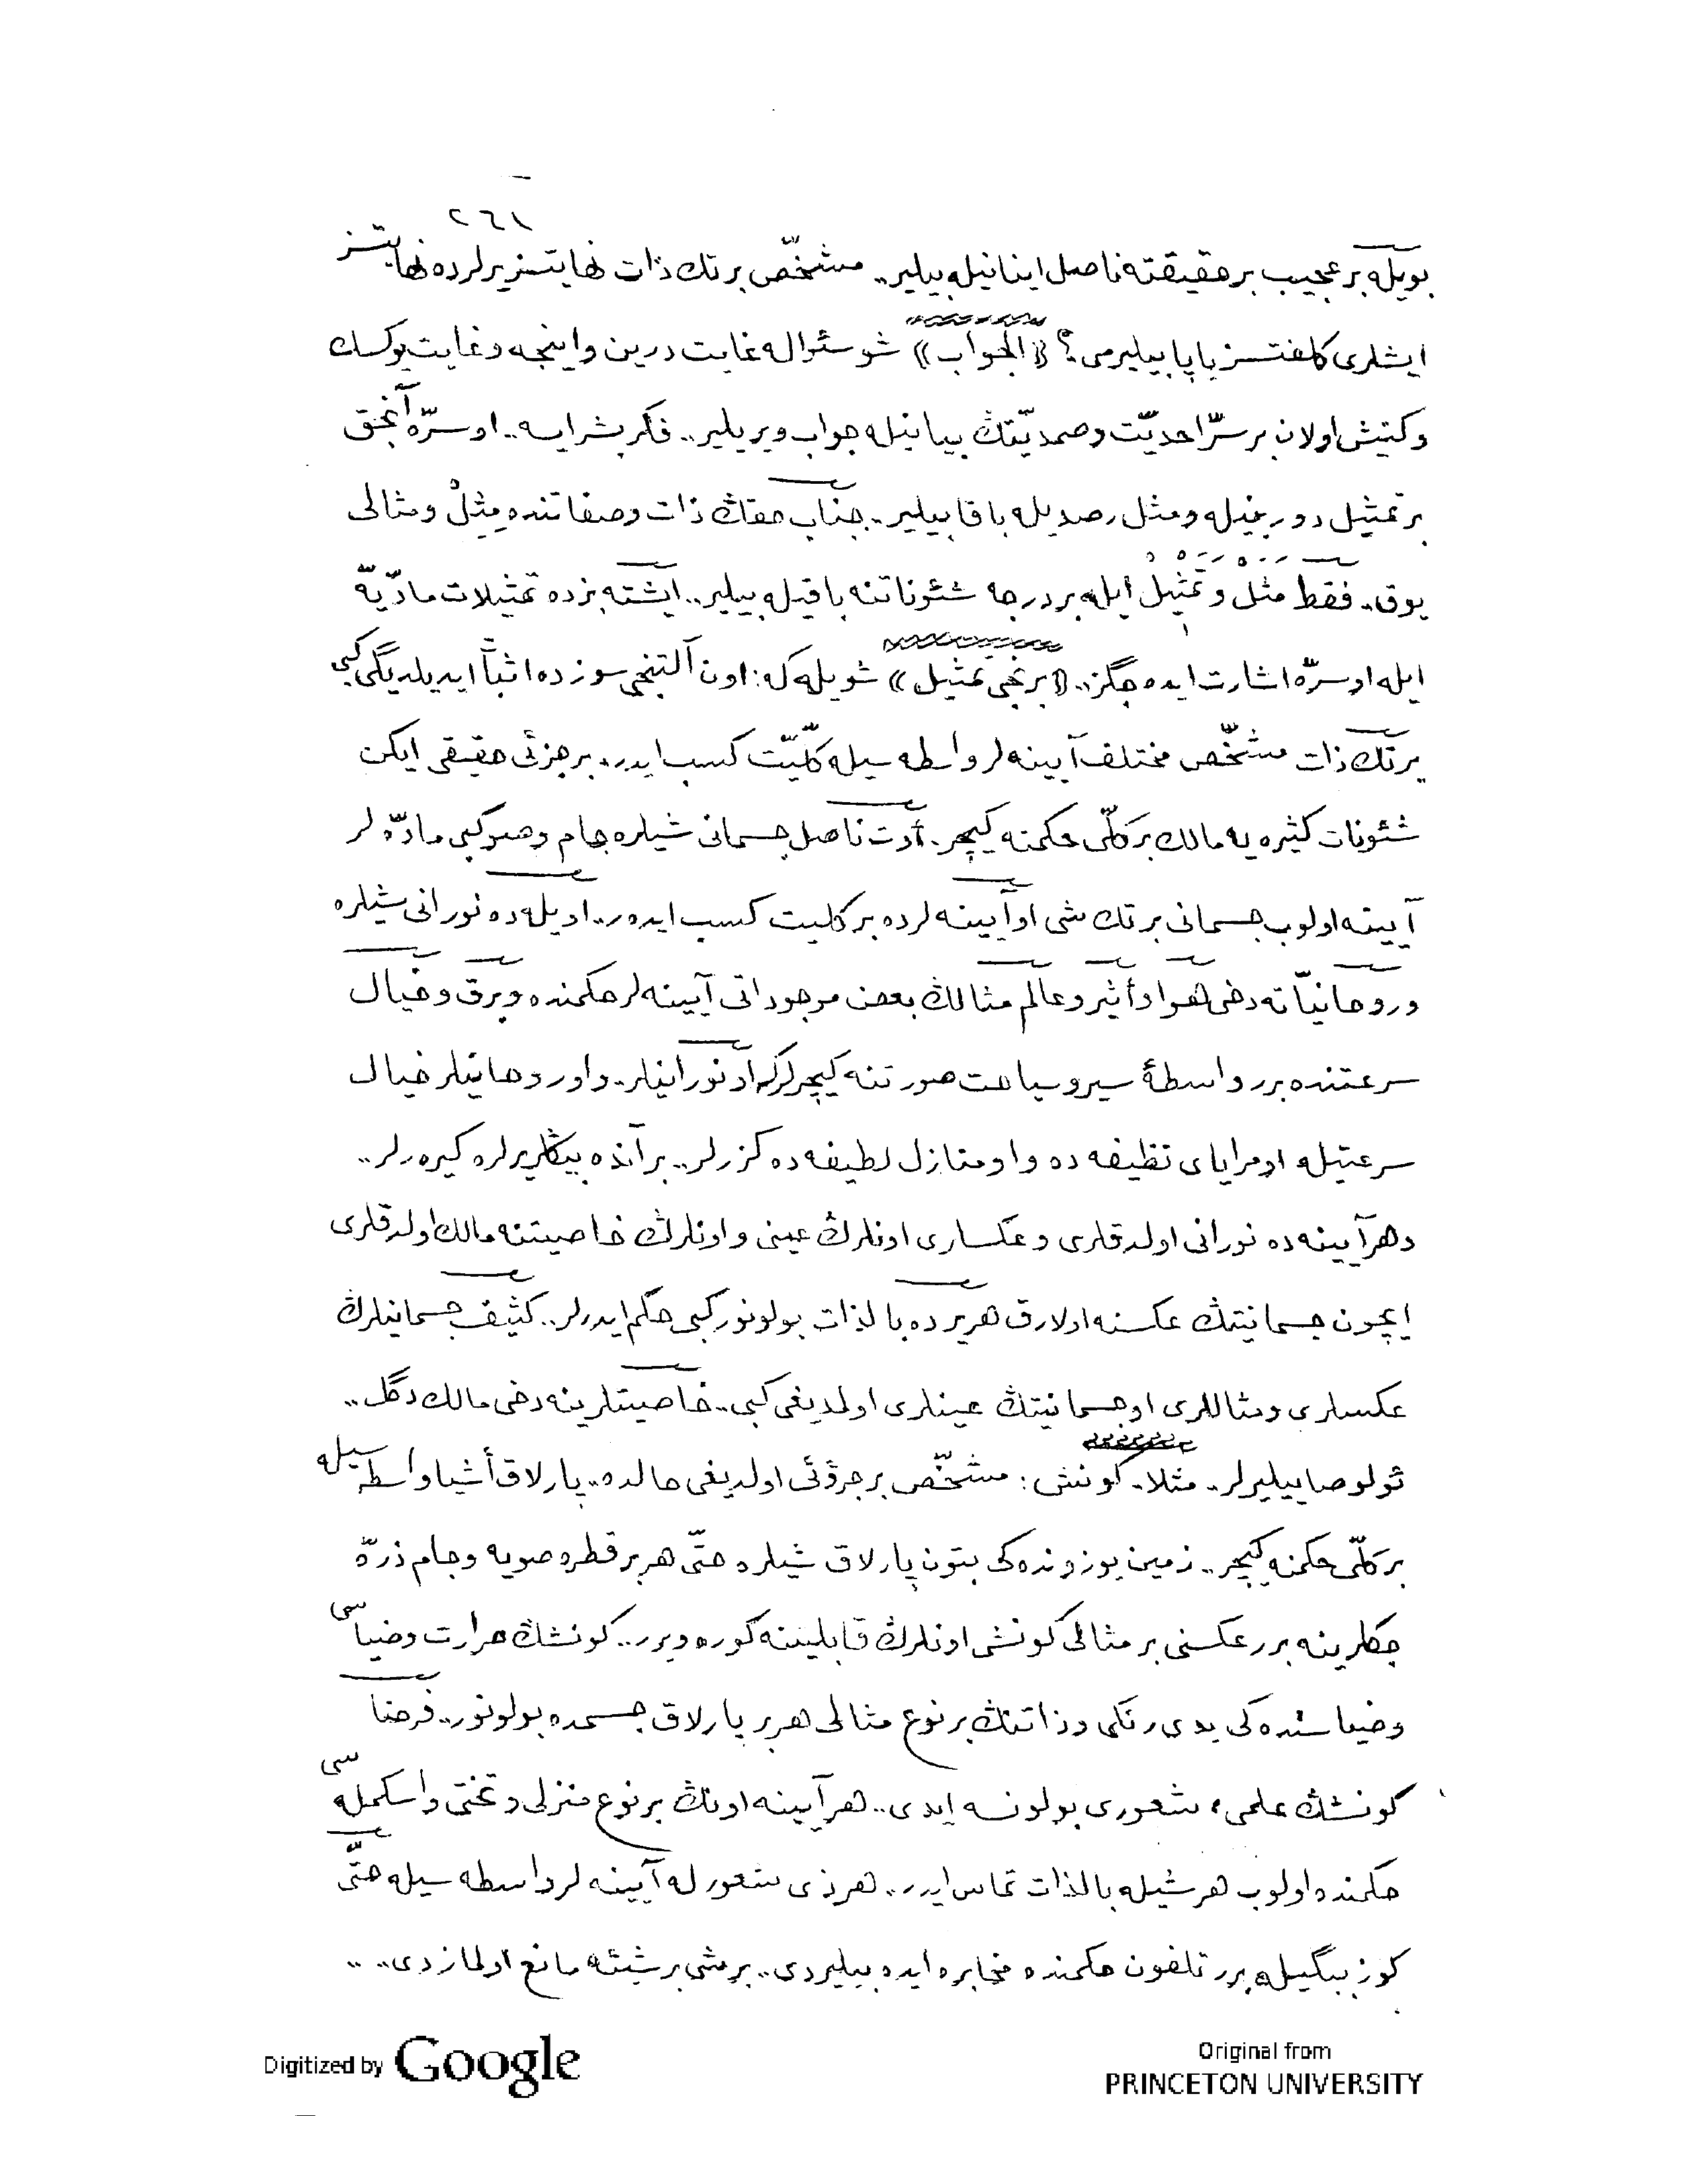 ٢٦١
بويله بر عجيب بر حقيقته ناصل اينانيله بيلير.. مشخّص بر تك ذات نهايتسز يرلرده نهايتسز
ايشلرى كلفتسز ياپا بيليرمى؟ «الجواب» شو سئواله غايت درين و اينجه و غايت يوكسك
و كنيش اولان بر سرّ احديّت و صمديّتڭ بيانيله جواب ويريلير.. فكر بشر ايسه.. او سرّه آنجق
بر تمثيل دوربينيله و مثل رصديله باقا بيلير.. جناب حقڭ ذات و صفاتنده مِثِلْ و مثالى
يوق.. فقط مثل و تمثيل ايله بر درجه شئوناتنه باقيله بيلير.. ايشته بزده تمثيلات مادّيّه
ايله او سرّه اشارت ايده جگز.. «برنجى تمثيل» شويله كه: اون آلتنجى سوزده اثباتّ ايديلديگى كبى
بر تك ذات مشخّص مختلف آيينه لر واسطه سيله كلّيّت كسب ايدر.. بر جزئى حقيقى ايكن
شئونات كثيره يه مالك بر كلّى حكمنه كيچر.. أوت ناصل جسمانى شيلره جام و صو كبى مادّه لر
آيينه اولوب جسمانى بر تك شى او آيينه لرده بر كليت كسب ايده ر.. اويله ده نورانى شيلره
و روحانياته دخى هوا و أثير و عالم مثالڭ بعض موجوداتى آيينه لر حكمنده و برق و خيال
سرعتنده برر واسطۀ سير و سياحت صورتنه كيچرلركه او نورانيلر.. و او روحانيلر خيال
سرعتيله او مراياى نظيفه ده و او منازل لطيفه ده كزرلر.. بر آنده بيڭلر يرلره كيره رلر..
و هر آيينه ده نورانى اولدقلرى و عكسلرى اونلرڭ عينى و اونلرڭ خاصيتنه مالك اولدقلرى
ايچون جسمانيتڭ عكسنه اولارق هر يرده بالذات بولونور كبى حكم ايدرلر.. كثيف جسمانيلرڭ
عكسلرى و مثاللرى او جسمانيتڭ عينلرى اولمديغى كبى.. خاصيتلرينه دخى مالك دگل..
ئولو صاييليرلر.. مثلا.. كونش: مشخّص بر جزؤئى اولديغى حالده.. پارلاق أشيا واسطه سيله
بر كلّى حكمنه كيچر.. زمين يوزونده كى بتون پارلاق شيلره حتّى هر بر قطره صويه و جام ذرّه
جكلرينه برر عكسنى بر مثالى كونشى اونلرڭ قابليتنه كوره ويرر.. كونشڭ حرارت و ضياسى
و ضياسنده كى يدى رنكى و ذاتنڭ بر نوع مثالى هر بر پارلاق جسمده بولونور.. فرضا
كونشڭ علمى، شعورى بولونسه ايدى.. هر آيينه اونڭ بر نوع منزلى و تختى و اسكمله سى
حكمنده اولوب هر شيله بالذات تماس ايدر.. هر ذى شعور له آيينه لر واسطه سيله حتّى
كوز ببگيله برر تلفون حكمنده مخابره ايده بيليردى.. بر شى بر شيئه مانع اولمازدى.. ..
Digitized by Google
Original from
PRINCETON UNIVERSITY